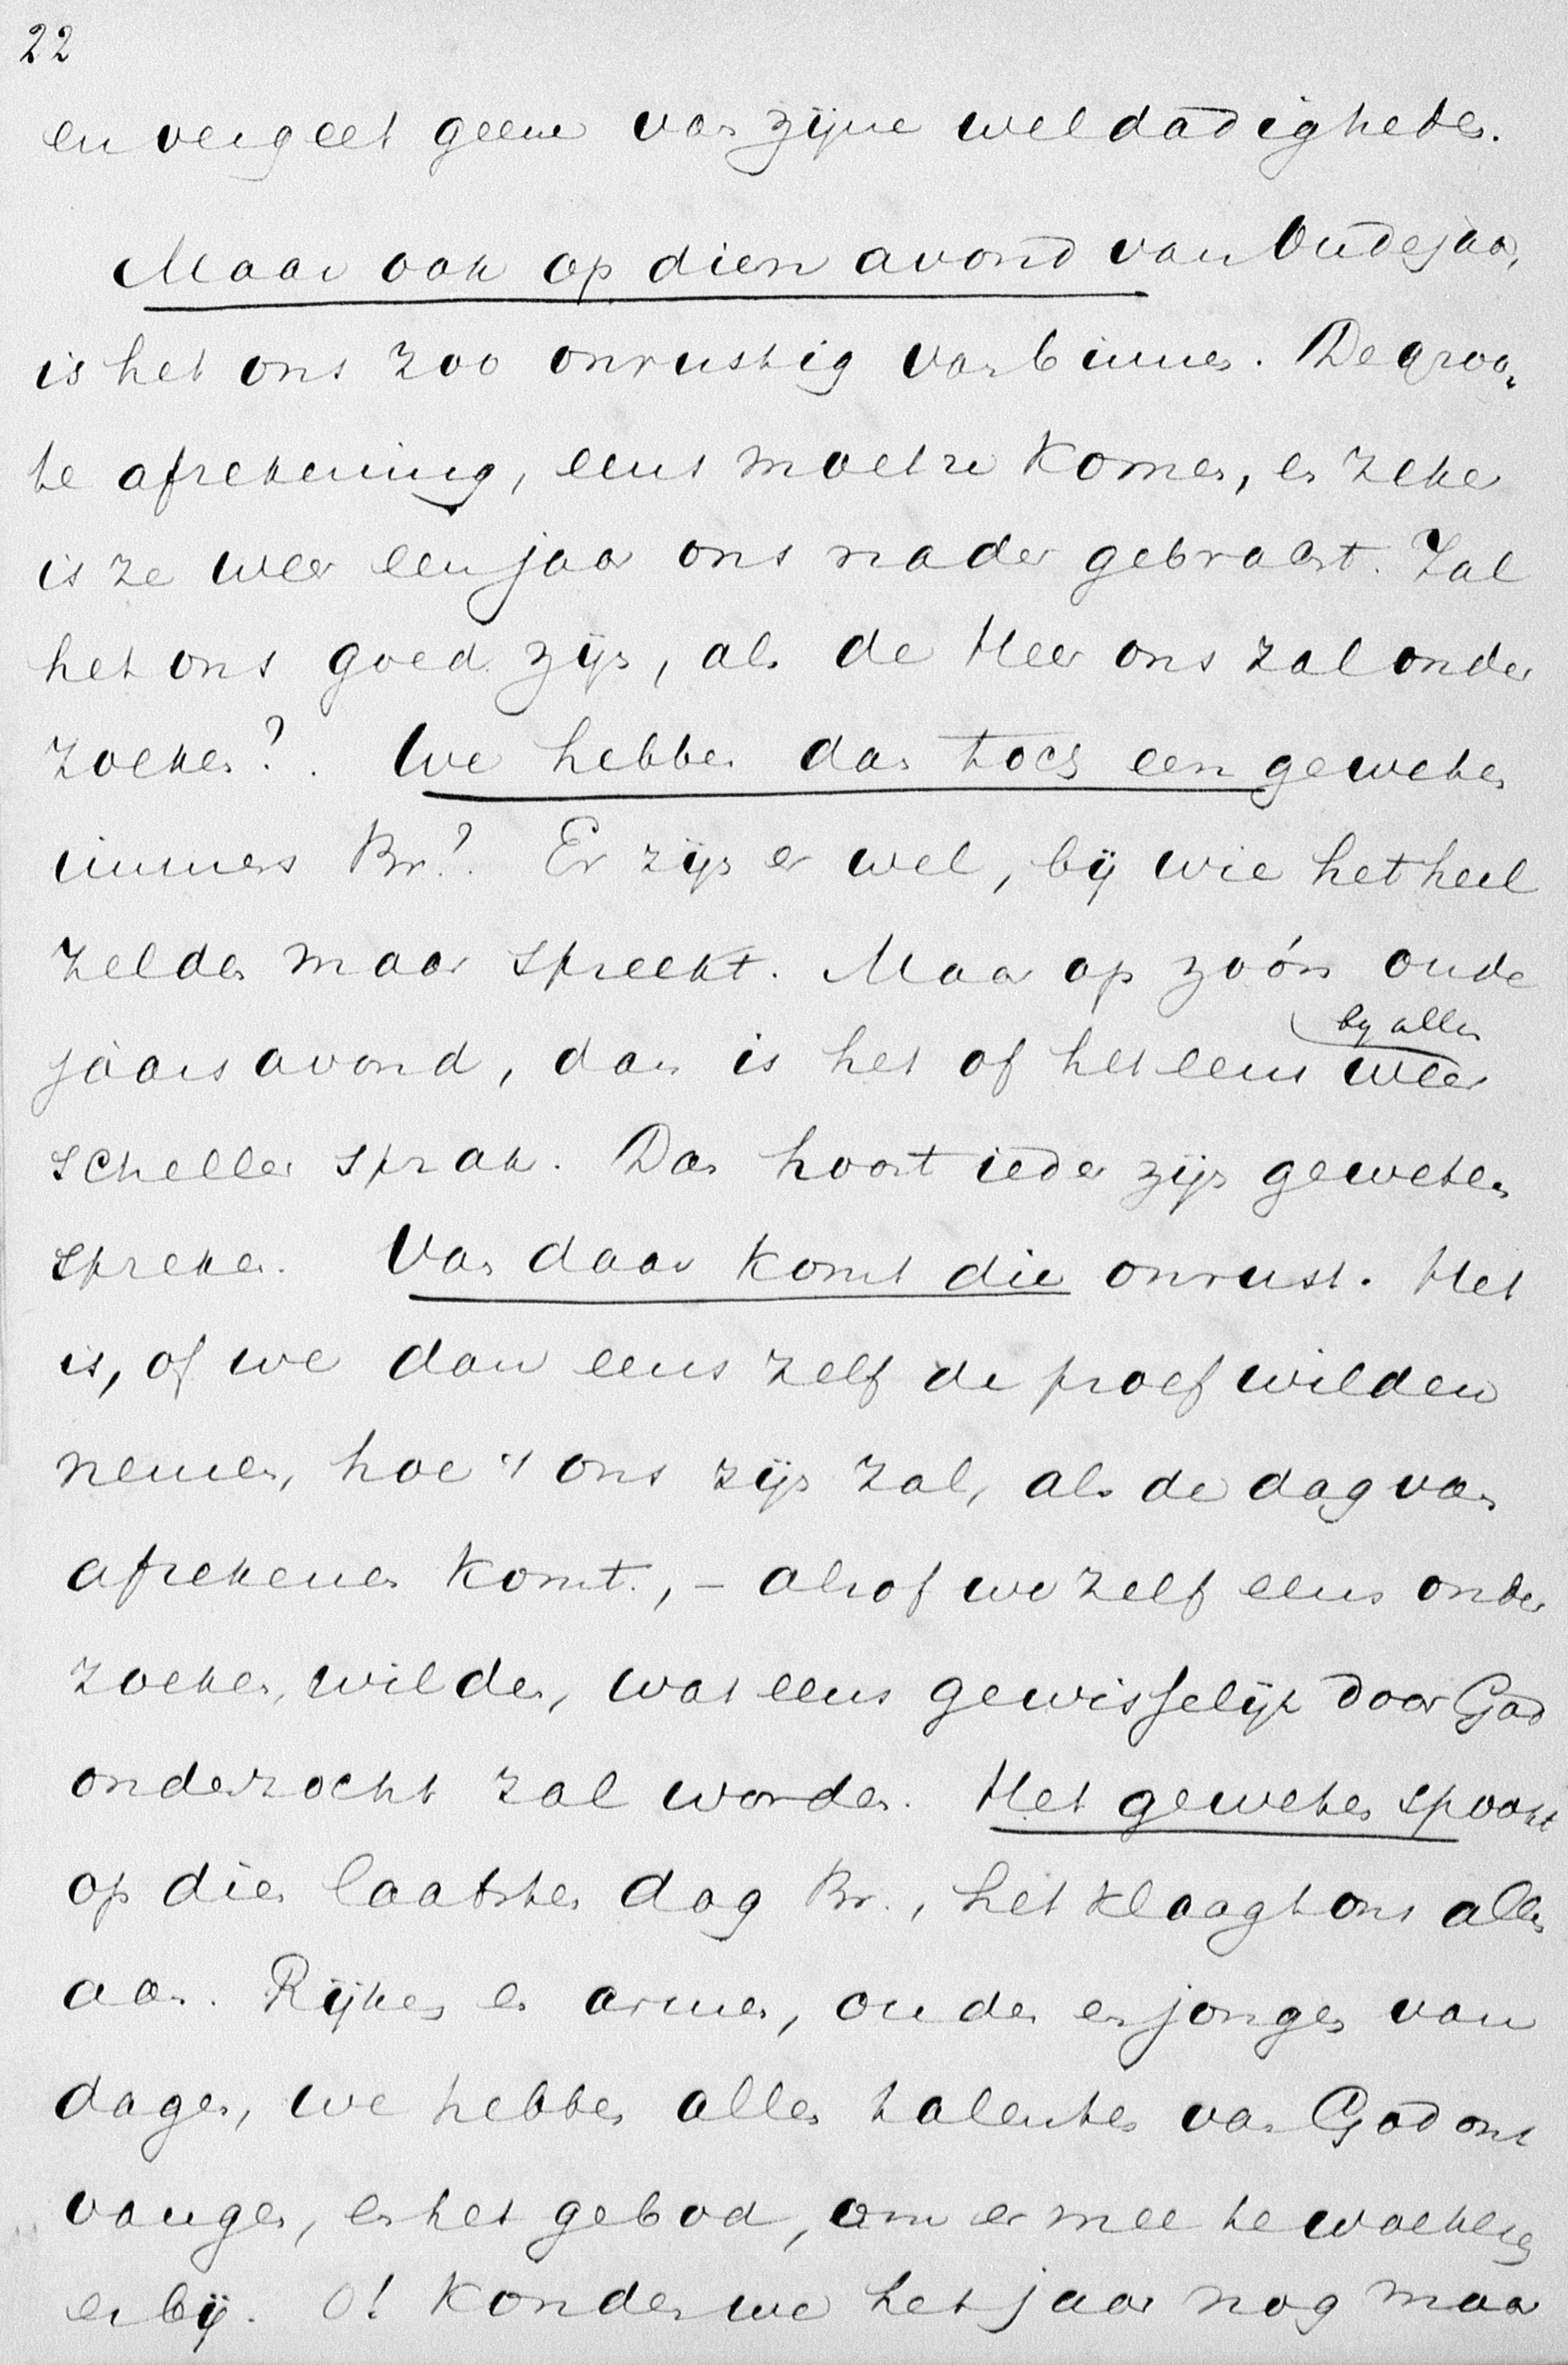 22
en vergeet geene van zijne weldadigheden.
Maar ook op dien avond van Oudejaar,
is het ons zoo onrustig van binnen. De groo-
te afrekening, eens moet ze komen, en zeker
is ze weer een jaar ons nader gebracht. Zal
het ons goed zijn, als de Heer ons zal onder
zoeken?. We hebben dan toch een geweten
immers Br.? Er zijn er wel, bij wie het heel
zelden maar spreekt. Maar op zóó'n oude
jaarsavond, dan is het of het eens weer
bij allen
scheller sprak. Dan hoort ieder zijn geweten
spreken. Van daar komt die onrust. Het
is, of we dan eens zelf de proef wilden
nemen, hoe 't ons zijn zal, als de dag van
afrekenen komt., – alsof we zelf eens onder
zoeken, wilden, wat eens gewisselijk door God
onderzocht zal worden. Het geweten spookt
op dien laatsten dag Br., het klaagt ons allen
aan. Rijken en armen, ouden en jongen van
dagen, we hebben allen talenten van God ont
vangen, en het gebod, om er mee te woekeren
erbij. O! konden we het jaar nog maar